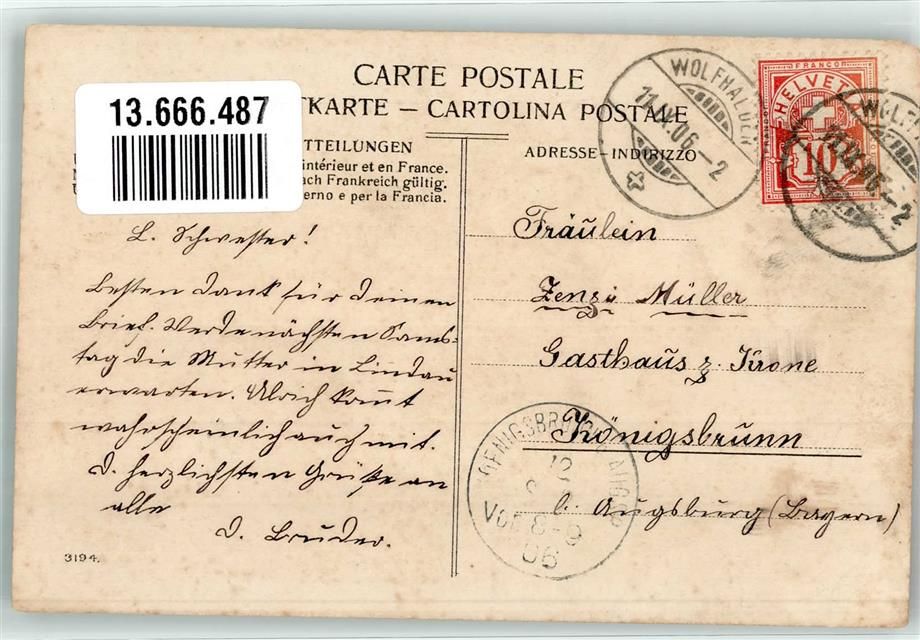 CARTE POSTALE
TKARTE – CARTOLINA POSTALE
13.666.487
TTEILUNGEN
intérieur et en France.
ach Frankreich gültig.
erno e per la Francia.
ADRESSE - INDIRIZZO
WOLFHALDEN
11. 06.-2
FRANCO
HELVETIA
10
L. Schwester!
Besten Dank für Deinen
Brief. Werde nächsten Sams-
tag die Mutter in Lindau
erwarten. Ulrich kommt
wahrscheinlich auch mit.
D. herzlichsten Grüße an
alle
D. Bruder.
3194.
Fräulein
Zenzi Müller
Gasthaus z. Krone
Königsbrunn
b. Augsburg (Bayern)
12
Vor 8-9
06